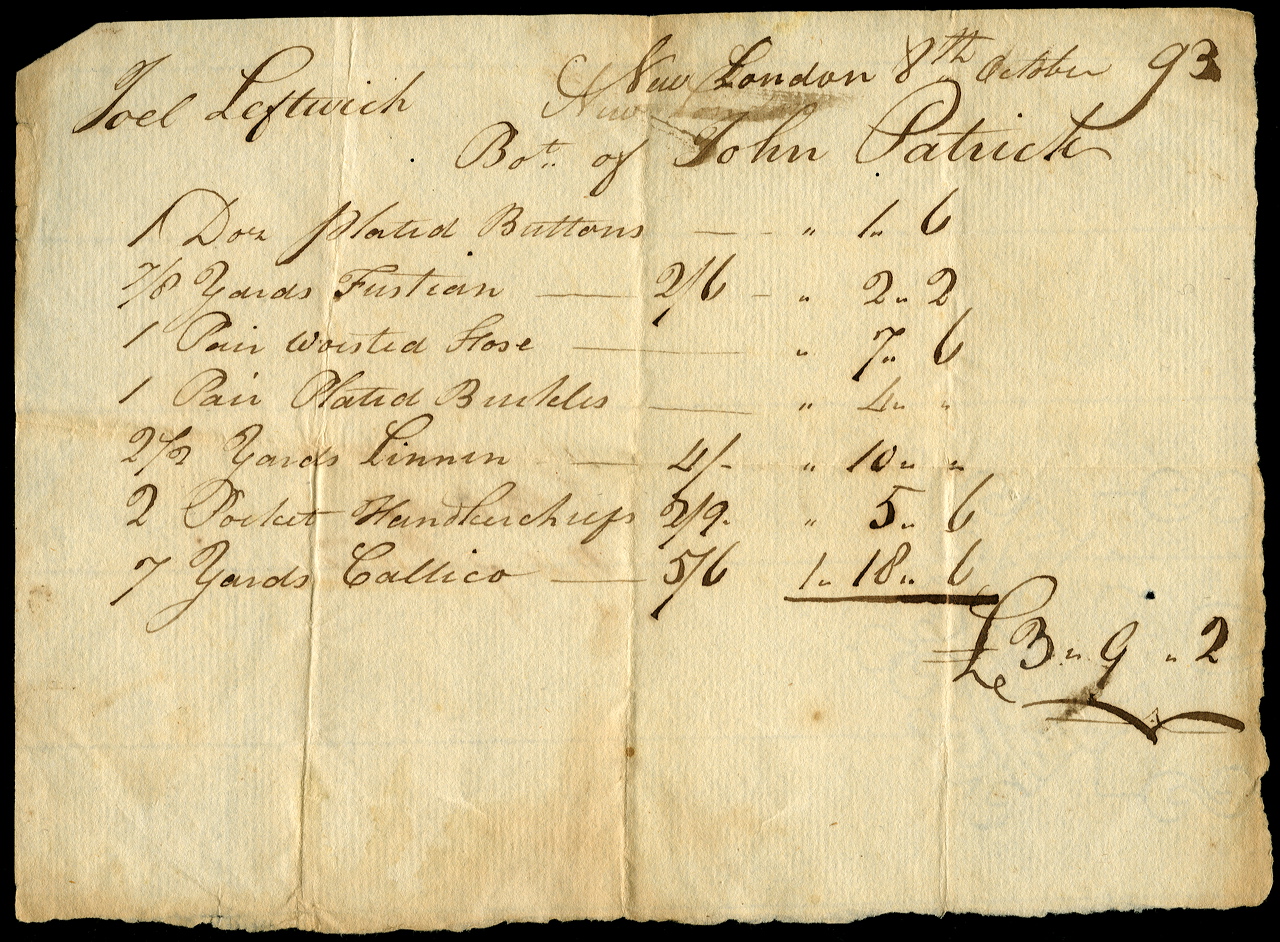 New London 8th October 93
Joel Leftwich
Bot. of John Patrick
1 Doz plated Buttons — " 1 " 6
7/8 Yards Fustian — 2/6 — " 2 " 2
1 Pair worsted Hose — " 7 " 6
1 Pair Plated Buckles — " 4 " "
2 1/2 Yards Linnen — 4/- " 10 " "
2 Pocket Handkerchiefs 2/9 " 5 " 6
7 Yards Callico — 5/6 1 " 18 " 6
£3 " 9 " 2